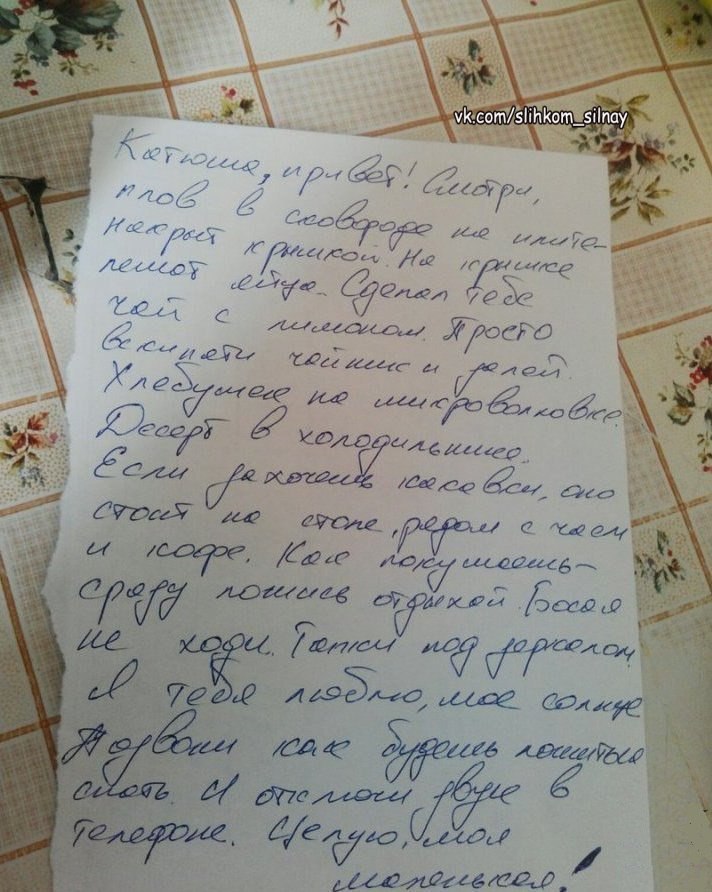 vk.com/slihkom_silnay
Катюша, привет! Смотри,
плов в сковороде на плите-
накрыт крышкой. На крышке
лежат яйца. Сделал тебе
чай с лимоном. Просто
вскипяти чайник и залей.
Хлебушек на микроволновке.
Десерт в холодильнике.
Если захочешь какавки, оно
стоит на столе, рядом с чаем
и кофе. Как покушаешь-
сразу ложись отдыхай. Босая
не ходи. Тапки под зеркалом.
Я тебя люблю, мое солнце
Позвони как будешь ложиться
спать. И отключи звук в
телефоне. Целую, моя
маленькая!